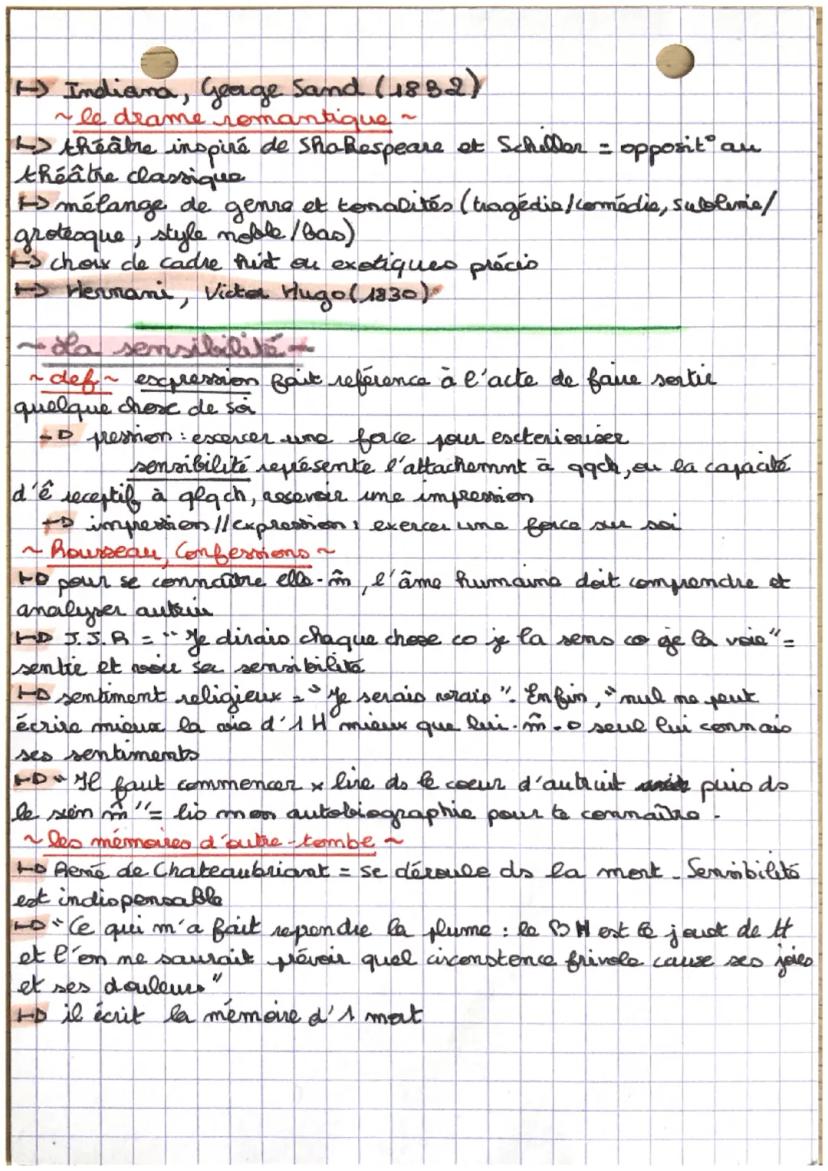 ↳ Indiana, George Sand (1832)
~ le drame romantique ~
↳ théâtre inspiré de Shakespeare et Schiller = opposit° au
théâtre classique
↳ mélange de genre et tonalités (tragédie/comédie, sublime/
grotesque, style noble/bas)
↳ choix de cadre hist ou exotiques précis
↳ Hernani, Victor Hugo (1830)
~ La sensibilité ~
~ def ~ expression fait référence à l'acte de faire sortir
quelque chose de soi
→ pression : exercer une force pour exterioriser
sensibilité représente l'attachemnt à qqch, ou la capacité
d'ê receptif à qlqch, recevoir une impression
→ impression // expression : exercer une force sur soi
~ Rousseau, Confessions ~
→ pour se connaître elle-m̂, l'âme humaine doit comprendre et
analyser autrui
→ J.J.R = "Je dirais chaque chose co je la sens co je la vois" =
sentir et voir sa sensibilité
→ sentiment religieux = "Je serais vrais". Enfin, "nul ne peut
écrire mieux la vie d'1 H mieux que lui-m̂ → seul lui connais
ses sentiments
→ "Il faut commencer x lire ds le coeur d'autruit puis ds
le sien m̂" = lis mon autobiographie pour te connaître.
~ les mémoires d'outre-tombe ~
→ René de Chateaubriant = se déroule ds la mort. Sensibilité
est indispensable
→ "Ce qui m'a fait reprendre la plume : le BH est le jouet de tt
et l'on ne saurait prévoir quel circonstence frivole cause ses joies
et ses douleurs"
→ il écrit la mémoire d'1 mort